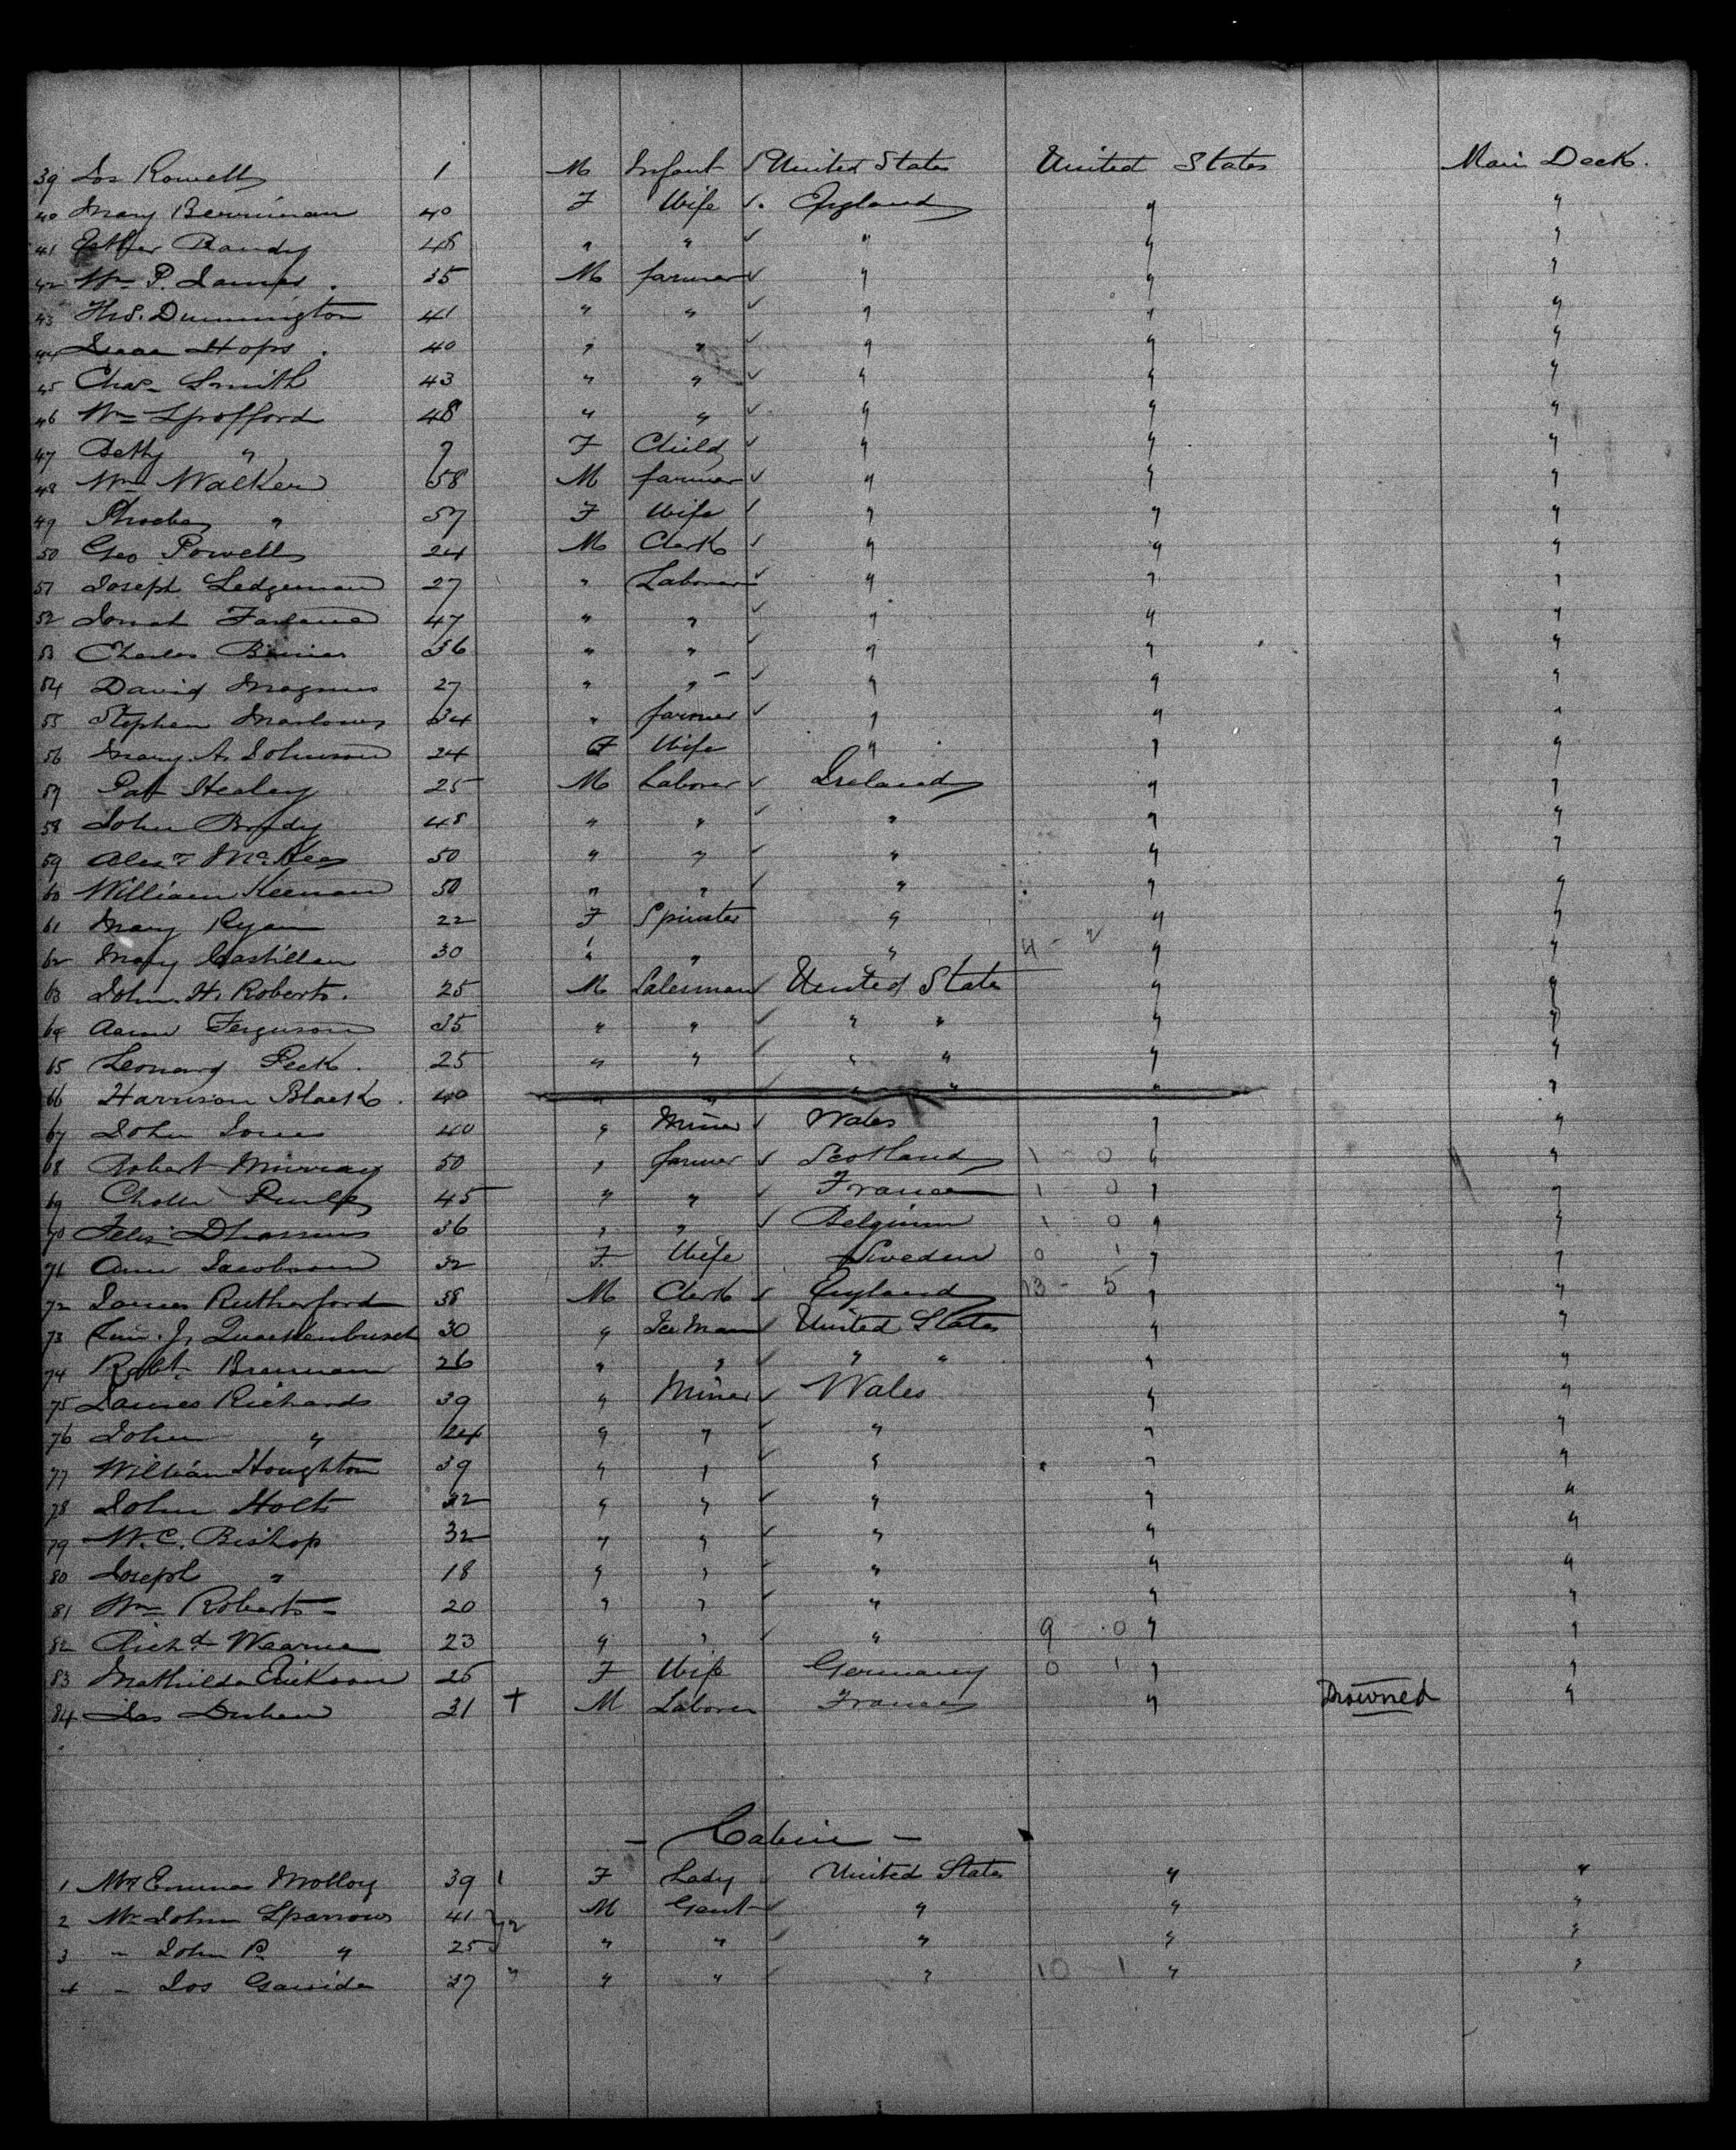 39 Jos Rowell 1 M Infant ✓ United States United States Main Deck.
40 Mary Berriman 40 F Wife ✓. England " "
41 Esther Bandy 48 " " ✓ " " "
42 Wm P. James . 35 M farmer ✓ " " "
43 Thos. Dunnington 41 " " ✓ " " "
44 Hops . 40 " " ✓ " " "
45 Chas Smith 43 " " ✓ " " "
46 Wm Spofford 48 " " ✓ " " "
47 Betty " 9 F Child ✓ " " "
48 Wm Walker 58 M farmer ✓ " " "
49 Phoebe " 57 F Wife ✓ " " "
50 Geo Powell 24 M Clerk ✓ " " "
51 Joseph Ledgerman 27 " Laborer ✓ " " "
52 47 " " ✓ " " "
53 Charles 36 " " ✓ " " "
54 David Magnus 27 " " ✓ " " "
55 Stephen 34 " farmer ✓ " " "
56 Mary A. Johnson 24 F Wife " " "
57 Pat Healey 25 M Laborer ✓ Ireland " "
58 John Brody 48 " " ✓ " " "
59 Alexr McKee 50 " " ✓ " " "
60 William Keenan 50 " " ✓ " " "
61 Mary Ryan 22 F Spinster " " "
62 Mary 30 " " " 4 - 2 " "
63 John. H. Roberts. 25 M Salesman ✓ United States " "
64 Ferguson 35 " " ✓ " " " "
65 Leonard Peck . 25 " " ✓ " " " "
66 Harrison Black . 40 " " ✓ " " " "
67 John Jones 40 " Miner ✓ Wales " "
68 Robert Murray 50 " farmer ✓ Scotland 1 0 " "
69 45 " " ✓ France 1 0 " "
70 Felix 36 " " ✓ Belgium 1 0 " "
71 Ann Jacobson 32 F. Wife Sweden 0 1 " "
72 James Rutherford 38 M Clerk ✓ England 13 - 5 " "
73 J. Quackenbusch 30 " ✓ United States " "
74 Robt. Brennan 26 " " ✓ " " " "
75 James Richards 39 " Miner ✓ Wales " "
76 John " 24 " " ✓ " " "
77 William Houghton 39 " " ✓ " " "
78 John Holt 32 " " ✓ " " "
79 W. C. Bishop 32 " " ✓ " " "
80 Joseph " 18 " " ✓ " " "
81 Wm Roberts 20 " " ✓ " " "
82 Richd Wearne 23 " " ✓ " 9 - 0 " "
83 Mathilda Erikson 25 F Wife Germany 0 1 " "
84 31 + M Laborer France " Drowned "
- Cabin -
1 Mrs Emma Molloy 39 1 F Lady United States " "
2 Mr John Sparrow 41 } 2 M Gent ✓ " " "
3 " John R. " 25 " " ✓ " " "
4 " Jos 37 " " " ✓ " 10 - 1 " "